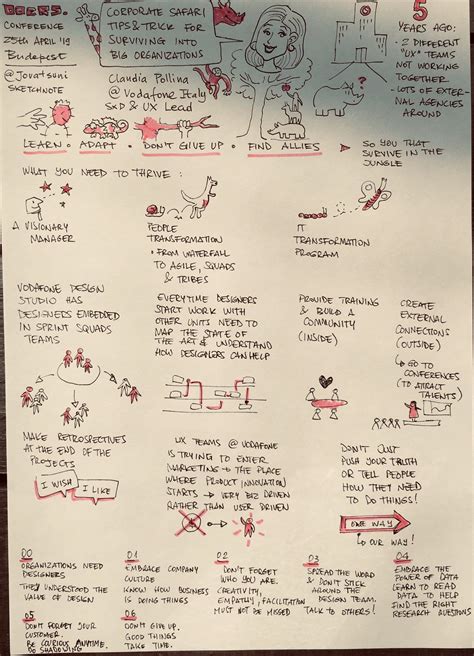 CONFERENCE
25TH APRIL '19
Budapest
@JOVATSUNI
SKETCHNOTE
CORPORATE SAFARI
TIPS & TRICK FOR
SURVIVING INTO
BIG ORGANIZATIONS
Claudia Pollina
@ Vodafone Italy
SKD & UX Lead
5
YEARS AGO:
- 2 DIFFERENT
"UX" TEAMS
NOT WORKING
TOGETHER
- LOTS OF EXTER-
NAL AGENCIES
AROUND
LEARN • ADAPT • DON'T GIVE UP • FIND ALLIES
SO YOU THAT
SURVIVE IN THE
JUNGLE
WHAT YOU NEED TO THRIVE:
A VISIONARY
MANAGER
PEOPLE
TRANSFORMATION
• FROM WATERFALL
TO AGILE, SQUADS
& TRIBES
IT
TRANSFORMATION
PROGRAM
VODAFONE DESIGN
STUDIO HAS
DESIGNERS EMBEDDED
IN SPRINT SQUADS
TEAMS
EVERYTIME DESIGNERS
START WORK WITH
OTHER UNITS NEED TO
MAP THE STATE OF
THE ART & UNDERSTAND
HOW DESIGNERS CAN HELP
PROVIDE TRAINING
& BUILD A
COMMUNITY
(INSIDE)
CREATE
EXTERNAL
CONNECTIONS
(OUTSIDE)
↳ GO TO
CONFERENCES
(TO ATTRACT
TALENTS)
MAKE RETROSPECTIVES
AT THE END OF THE
PROJECTS
I WISH
I LIKE
UX TEAMS @ VODAFONE
IS TRYING TO ENTER
MARKETING → THE PLACE
WHERE PRODUCT INNOVATION
STARTS → VERY BIZ DRIVEN
RATHER THAN USER DRIVEN
DON'T JUST
PUSH YOUR TRUTH
OR TELL PEOPLE
HOW THEY NEED
TO DO THINGS!
ONE WAY
↳ OUR WAY!
00
ORGANIZATIONS NEED
DESIGNERS
THEY UNDERSTOOD THE
VALUE OF DESIGN
01
EMBRACE COMPANY
CULTURE
KNOW HOW BUSINESS
IS DOING THINGS
02
DON'T FORGET
WHO YOU ARE.
CREATIVITY,
EMPATHY, FACILITATION
MUST NOT BE MISSED
03
SPREAD THE WORD
& DON'T STICK
AROUND THE
DESIGN TEAM.
TALK TO OTHERS!
04
EMBRACE THE
POWER OF DATA
LEARN TO READ
DATA TO HELP
FIND THE RIGHT
RESEARCH QUESTIONS
05
DON'T FORGET YOUR
CUSTOMER.
BE CURIOUS ANYTIME.
DO SHADOWING
06
DON'T GIVE UP.
GOOD THINGS
TAKE TIME.